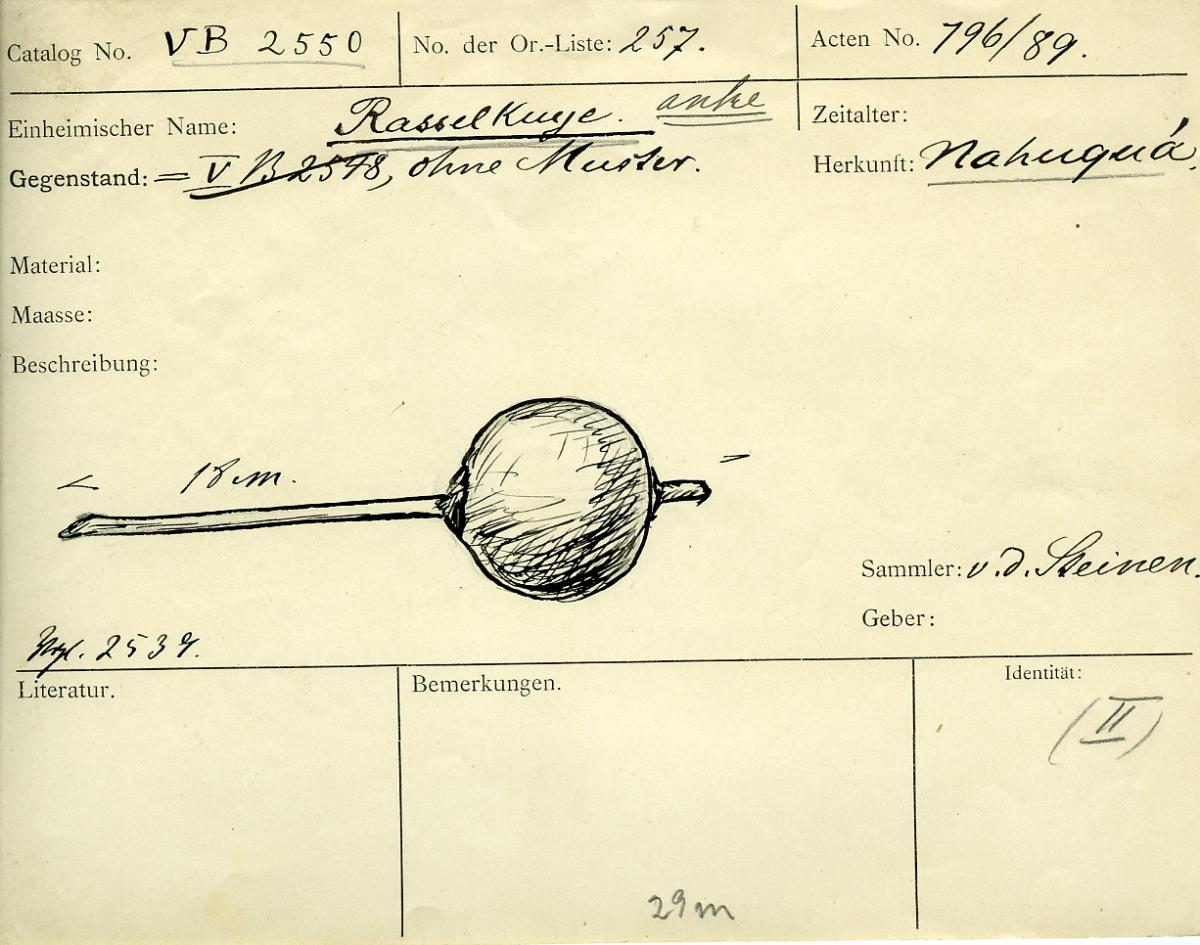 Catalog No. VB 2550
No. der Or.-Liste: 257.
Acten No. 796/89.
Einheimischer Name: Rasselkuye. anke
Zeitalter:
Gegenstand: = V B 2548, ohne Muster.
Herkunft: Nahuquá.
Material:
Maasse:
Beschreibung:
18 cm.
Sammler: v. d. Steinen.
Geber:
Vgl. 2534.
Literatur.
Bemerkungen.
Identität:
(II)
29m